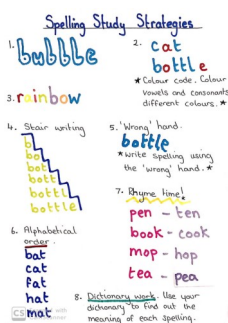 Spelling Study Strategies
1.
bubble
2.
cat
bottle
* Colour code. Colour
vowels and consonants
different colours. *
3. rainbow
4. Stair writing
b
bo
bot
bott
bottl
bottle
5. 'Wrong' hand.
bottle
* Write spelling using
the 'wrong' hand. *
6. Alphabetical
order.
bat
cat
fat
hat
mat
7. Rhyme time!
pen - ten
book - cook
mop - hop
tea - pea
8. Dictionary work. Use your
dictionary to find out the
meaning of each spelling.
CS